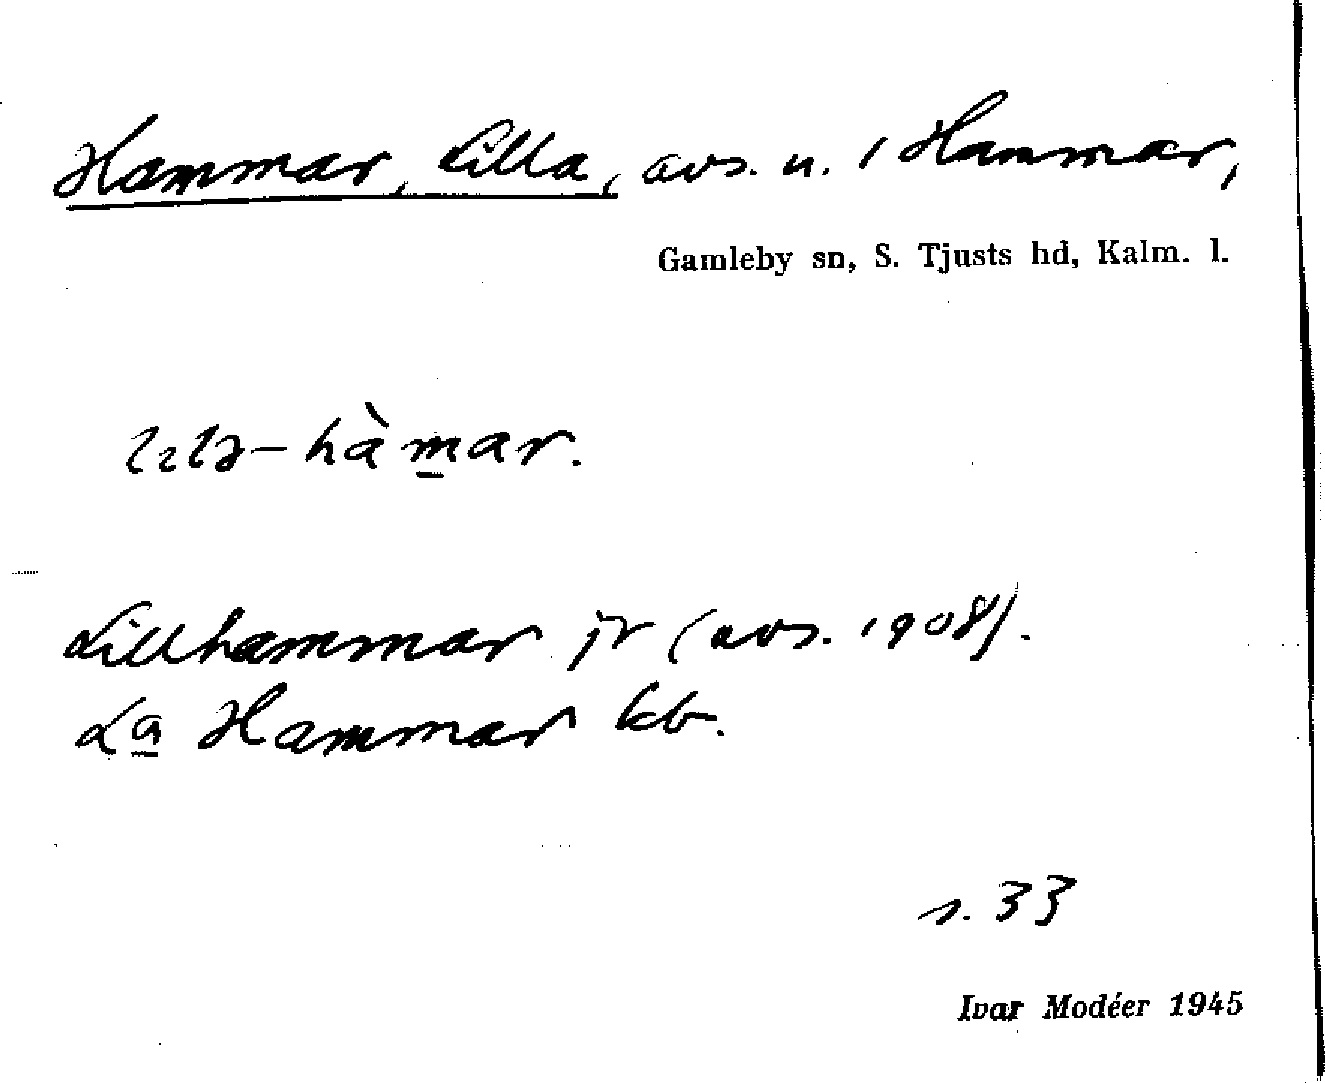 Hammar, Lilla, avs. u. 1 Hammar,
Gamleby sn, S. Tjusts hd, Kalm. l.
lılə–hàmar.
Lillhammar jr (avs. 1908).
La Hammar kb.
s. 33
Ivar Modéer 1945